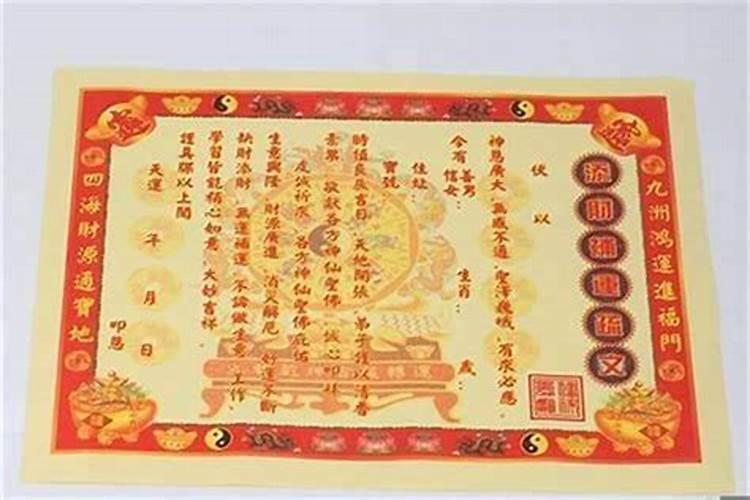 九洲鴻運進福門
添財補運疏文
伏以
神恩廣大 無感不通 聖澤巍峨 有求必應
今有善男信女： 生肖： 歲：
住址：
寶號
時值良辰吉日 天地開張 弟子僅以清香
素果 敬獻各方神仙聖佛 誠心叩拜
虔誠祈求 各方神仙聖佛庇佑
生意興隆 財源廣進 消災解厄 好運不斷
缺財添財 無運補運 不論做生意、工作、
學習皆能稱心如意 大妙吉祥
謹具疏以上聞
天運 年 月 日
叩懇
四海財源通寶地